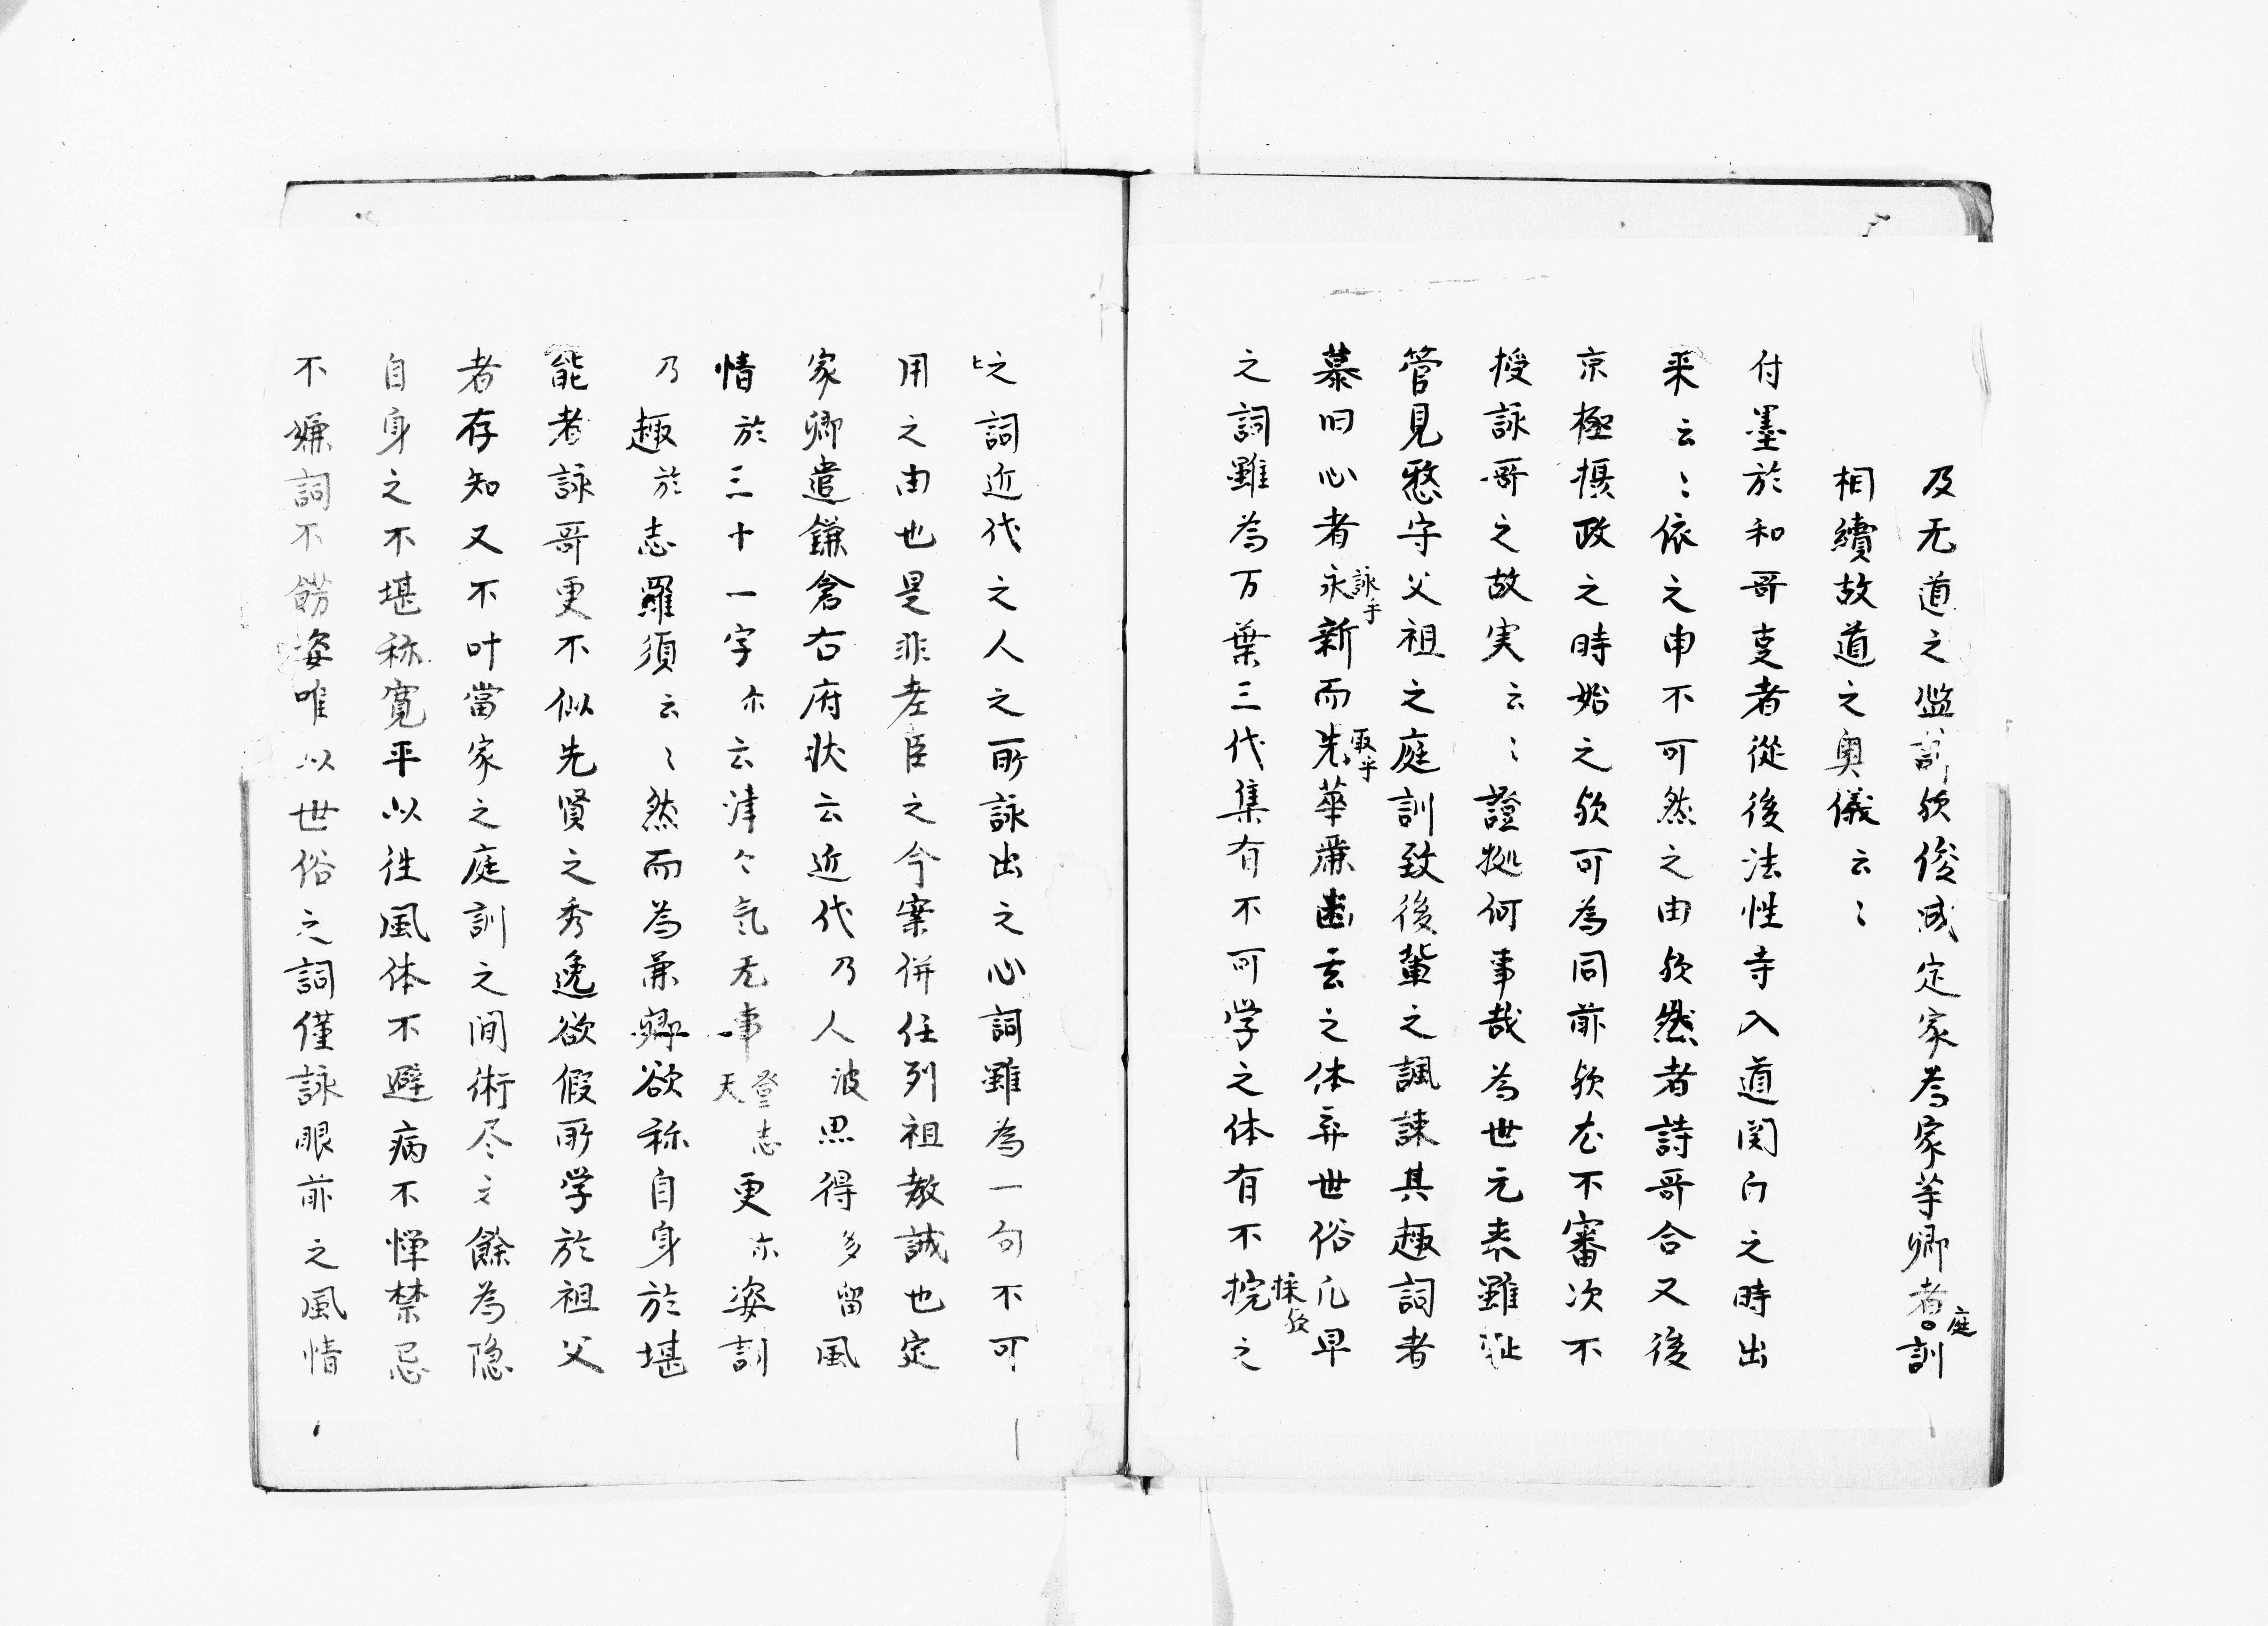 及无道之監訴欤俊成定家為家等卿者庭訓
相續故道之奥儀云〻
付墨於和哥㕝者從後法性寺入道関白之時出
来云〻依之申不可然之由欤然者詩哥合又後
京極摂政之時始之欤可為同前欤尤不審次不
授詠哥之故実云〻證拠何事哉為世元来雖
管見愁守父祖之庭訓致後輩之諷諫其趣詞者
慕旧心者永詠乎新而先取乎華麁幽玄之体弃世俗凡早
之詞雖為万葉三代集有不可学之体有不採欤之
之詞近代之人之所詠出之心詞雖為一句不可
用之由也是非老臣之今案併任列祖教誡也定
家卿遣鎌倉右府状云近代乃人波思得多留風
情於三十一字尓云津々気无事登志天更尓姿詞
乃趣於志羅須云〻然而為兼卿欲称自身於堪
能者詠哥更不似先賢之秀逸欲假所学於祖父
者存知又不叶當家之庭訓之間術尽之餘為隠
自身之不堪称寛平以往風体不避病不憚禁忌
不嫌詞不餝姿唯以世俗之詞僅詠眼前之風情